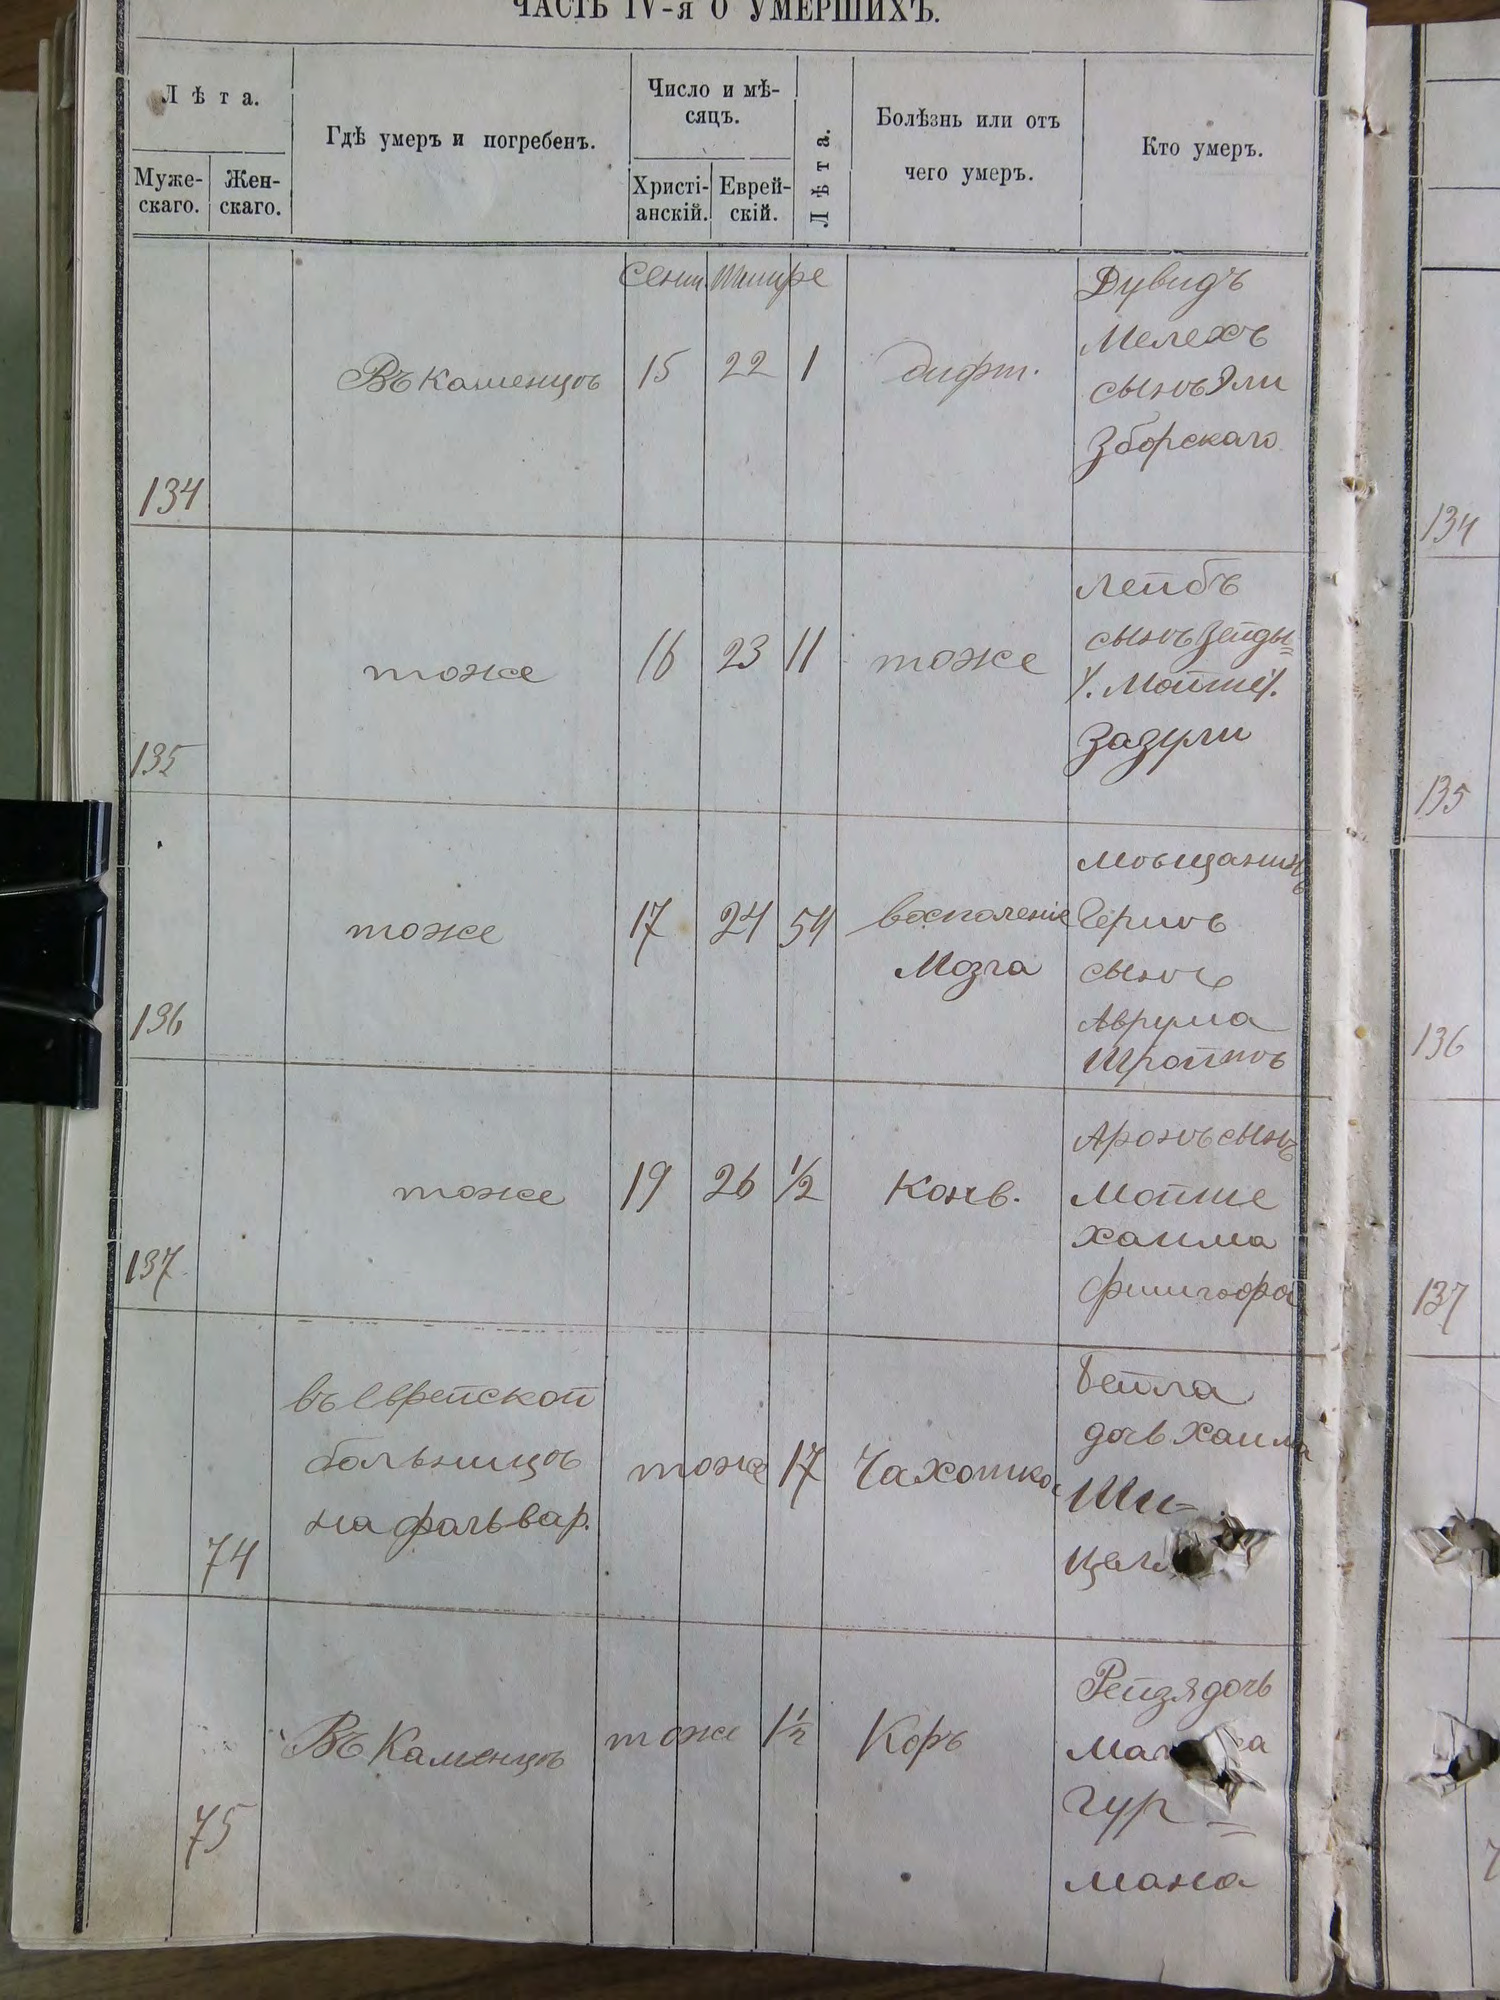 ЧАСТЬ IV-я О УМЕРШИХЪ.
Лѣта.
Муже-
скаго.
Жен-
скаго.
Гдѣ умеръ и погребенъ.
Число и мѣ-
сяцъ.
Христі-
анскій.
Еврей-
скій.
Лѣта.
Болѣзнь или отъ
чего умеръ.
Кто умеръ.
134
Въ Каменцѣ
Сент.
15
22
1
дифт.
Дувидъ
Мелехъ
сынъ Эли
Зборскаго
135
тоже
16
23
11
тоже
Лейбъ
сынъ Зейды=
Мойше
Зазули
136
тоже
17
24
54
воспаленіе
Мозга
мѣщанинъ
Гершъ
сынъ
Аврума
137
тоже
19
26
1/2
Конв.
Аронъ сынъ
Мойше
Хаима
74
въ Еврейской
больницѣ
на фольвар.
тоже
17
Чахотка
Бейла
дочь Хаима
Ши=
75
Въ Каменцѣ
тоже
1 1/2
Коръ
Рейзя дочь
Гур=
мана
134
135
136
137